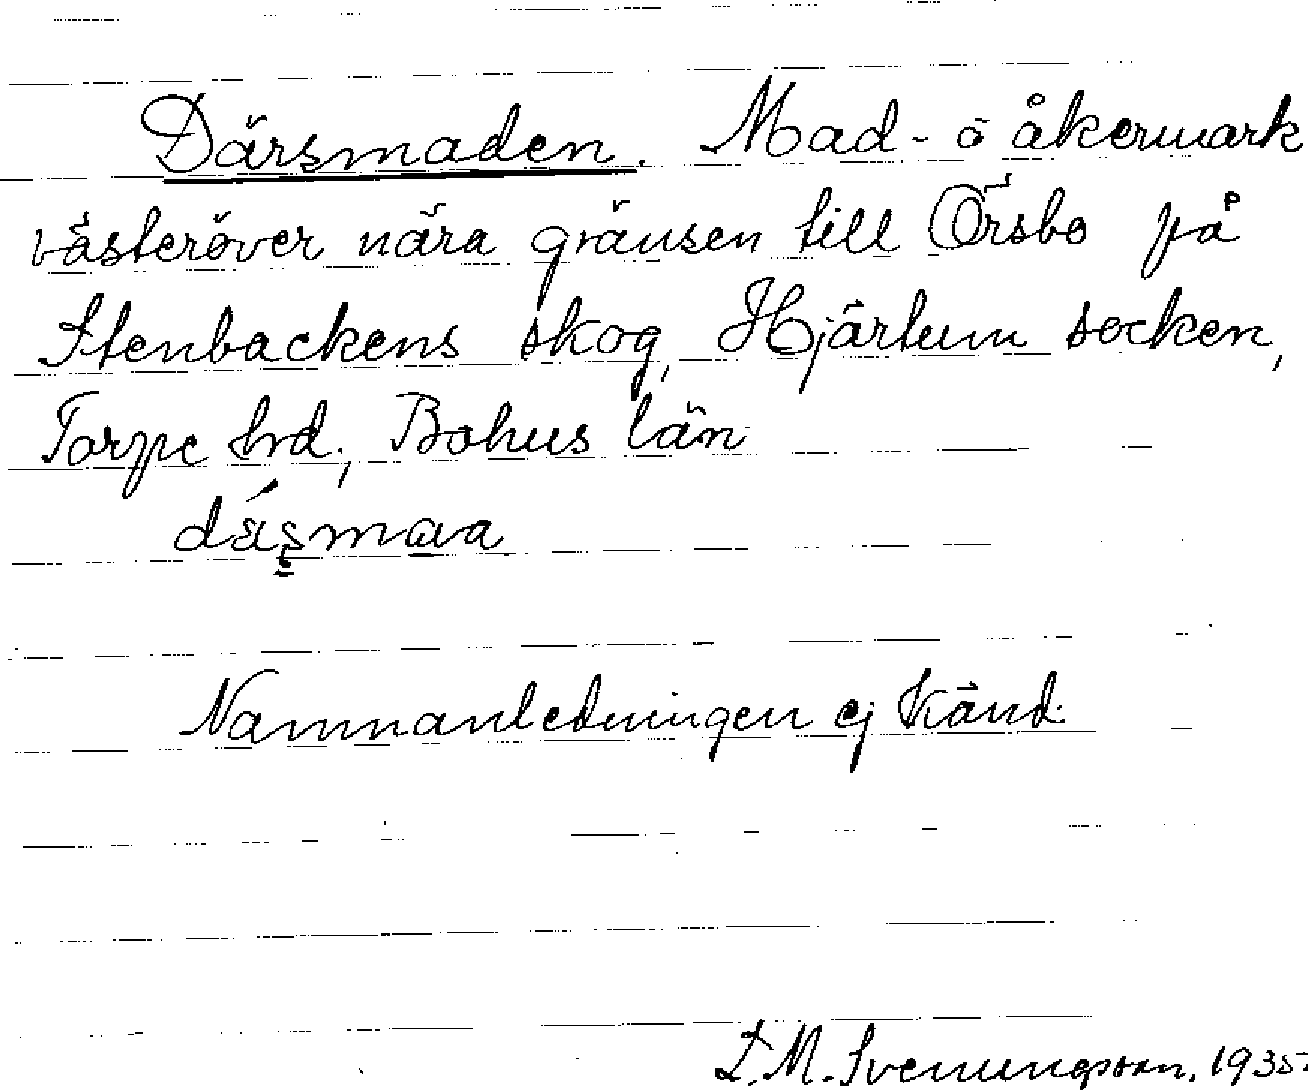 Därsmaden. Mad- o åkermark
västeröver nära gränsen till Örsbo på
Stenbackens skog, Hjärtum socken,
Torpe hrd., Bohus län
däşmaa
Namnanledningen ej känd.
L. M. Svenungsson. 1935.